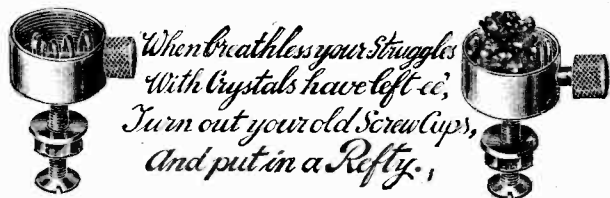 When breathless your Struggles
With Crystals have left 'ee,
Turn out your old Screw Cups,
And put in a Refty.,